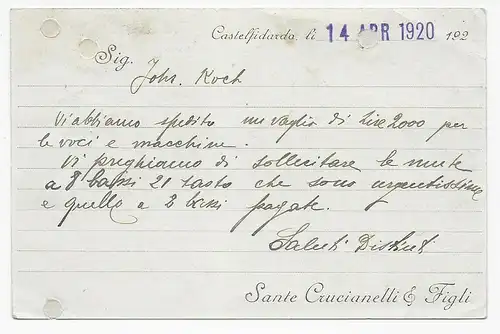 Castelfidardo, li 14 APR 1920 192
Sig.
Joh. Koch
Vi abbiamo spedito un vaglia di Lire 2000 per
le voci e macchine.
Vi preghiamo di sollecitare le mute
a 8 bassi 21 tasto che sono urgentissime
e quello a 2 bassi pagate.
Saluti Distinti
Sante Crucianelli & Figli